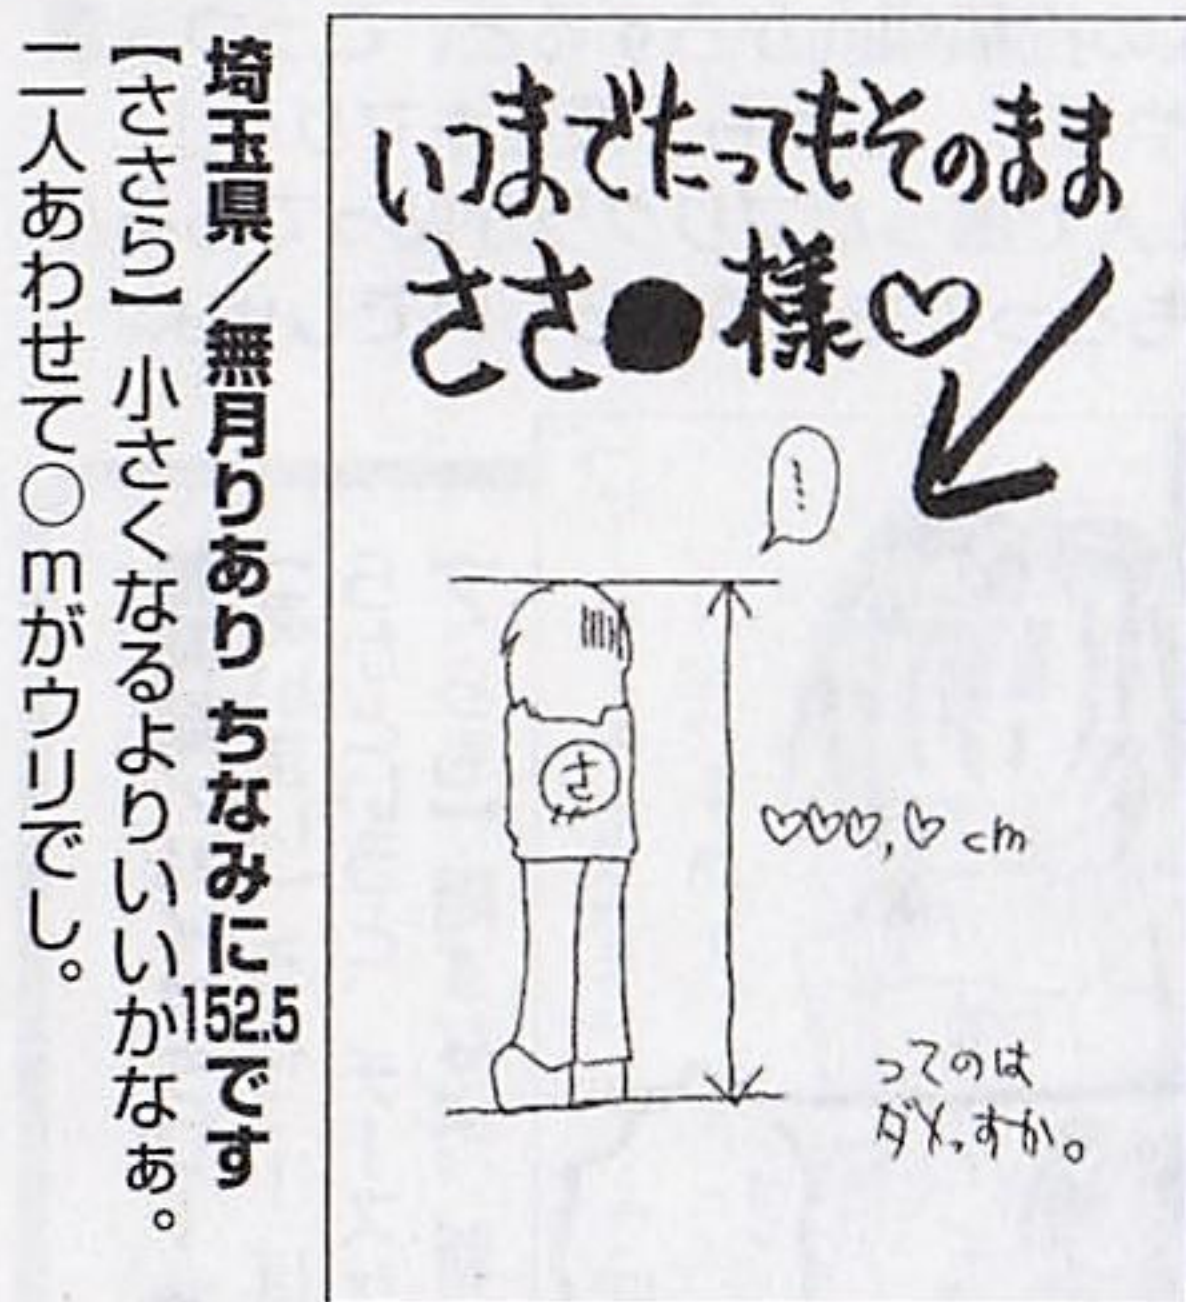 いつまでたってもそのまま
ささ●様♡
……
さ
♡♡♡,♡cm
ってのは
ダメっすか。
埼玉県／無月りあり ちなみに152.5です
【ささら】小さくなるよりいいかなぁ。
二人あわせて○mがウリでし。